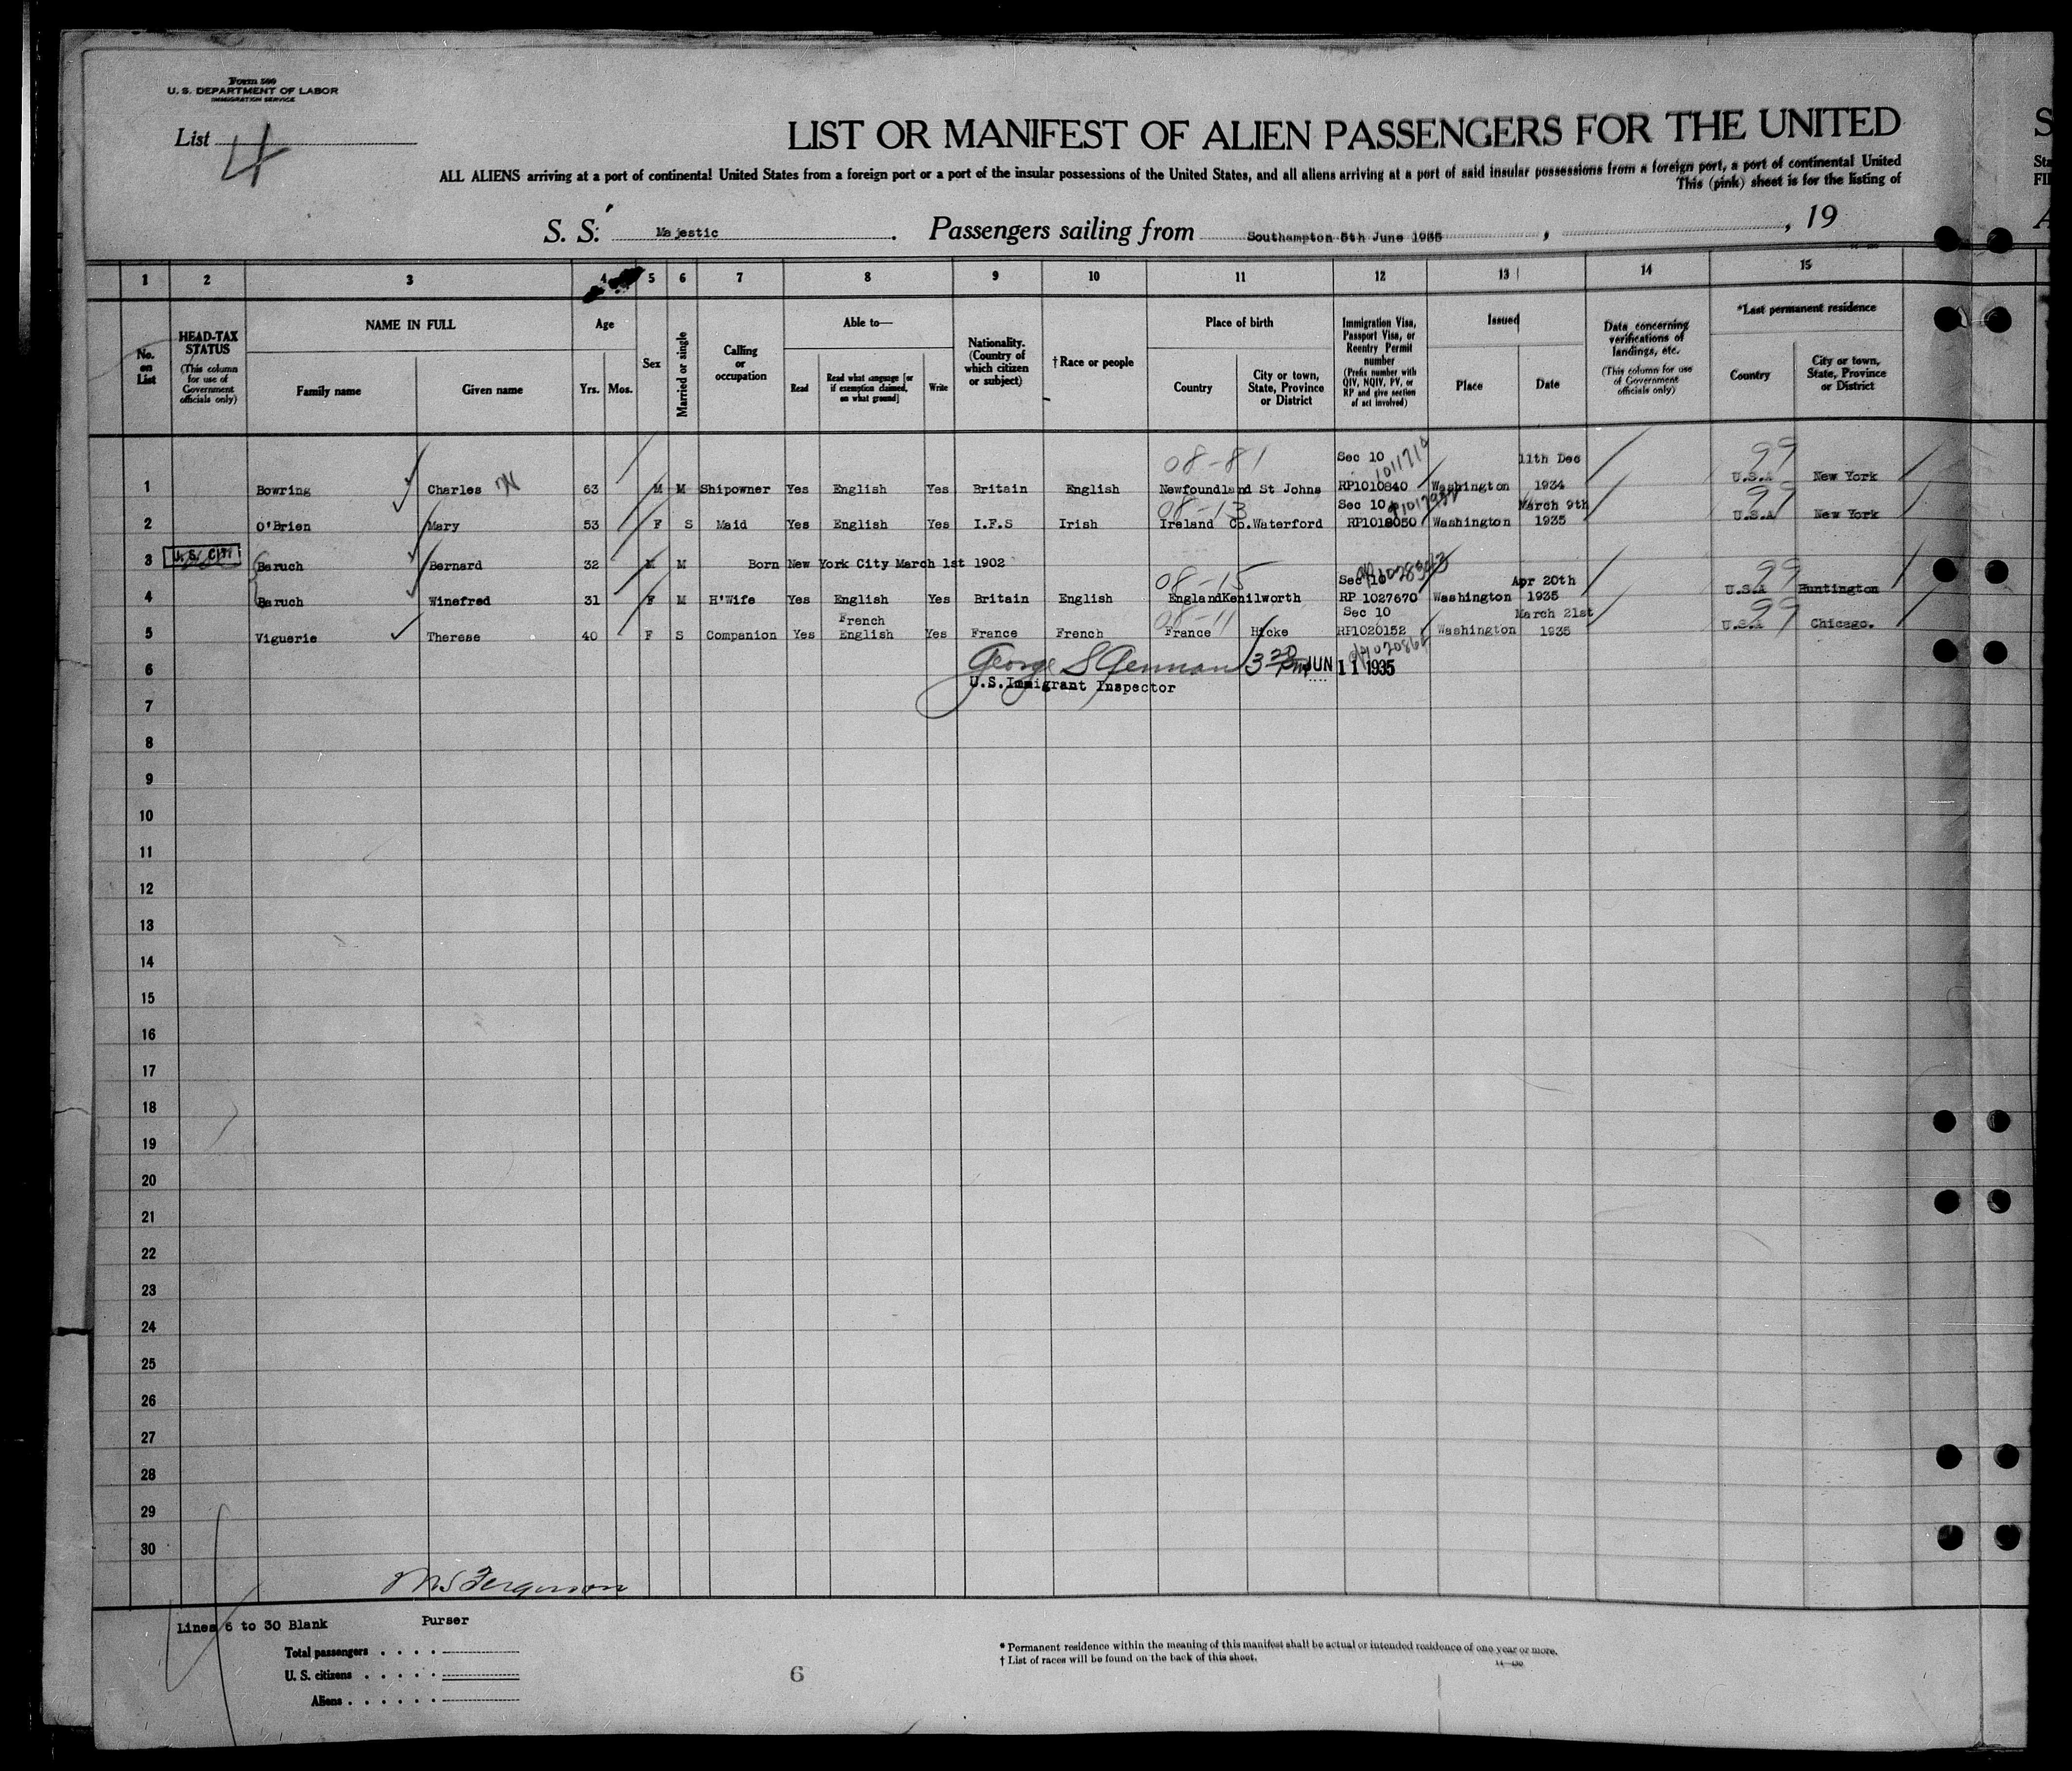 Form 500
U. S. DEPARTMENT OF LABOR
IMMIGRATION SERVICE
List 4
LIST OR MANIFEST OF ALIEN PASSENGERS FOR THE UNITED
ALL ALIENS arriving at a port of continental United States from a foreign port or a port of the insular possessions of the United States, and all aliens arriving at a port of said insular possessions from a foreign port, a port of continental United
This (pink) sheet is for the listing of
S. S. Majestic . Passengers sailing from Southampton 5th June 1935 , , 19
1 2 3 4 5 6 7 8 9 10 11 12 13 14 15
No. on List
HEAD-TAX STATUS (This column for use of Government officials only)
NAME IN FULL
Family name
Given name
Age
Yrs. Mos.
Sex
Married or single
Calling or occupation
Able to—
Read
Read what language [or if exemption claimed, on what ground]
Write
Nationality. (Country of which citizen or subject)
†Race or people
Place of birth
Country
City or town, State, Province or District
Immigration Visa, Passport Visa, or Reentry Permit number (Prefix number with QIV, NQIV, PV, or RP and give section of act involved)
Issued
Place
Date
Data concerning verifications of landings, etc. (This column for use of Government officials only)
*Last permanent residence
Country
City or town, State, Province or District
08-81 Sec 10 1011719 11th Dec 99
1 Bowring Charles 63 M M Shipowner Yes English Yes Britain English Newfoundland St Johns RP1010840 Washington 1934 U.S.A New York
08-13 Sec 10 March 9th 99
2 O'Brien Mary 53 F S Maid Yes English Yes I.F.S Irish Ireland Co.Waterford RP1018050 Washington 1935 U.S.A New York
3 U.S. CIT. Baruch Bernard 32 M M Born New York City March 1st 1902
08-15 Sec 10 Apr 20th 99
4 Baruch Winefred 31 F M H'Wife Yes English Yes Britain English England Kenilworth RP 1027670 Washington 1935 U.S.A Huntington
French 08-11 Sec 10 March 21st 99
5 Viguerie Therese 40 F S Companion Yes English Yes France French France Hicke RP1020152 Washington 1935 U.S.A Chicago.
6 George 3 20 pm JUN 11 1935
U.S.Immigrant Inspector
7
8
9
10
11
12
13
14
15
16
17
18
19
20
21
22
23
24
25
26
27
28
29
30
Ferguson
Lines 6 to 30 Blank Purser
Total passengers . . . .
U. S. citizens . . . . .
Aliens . . . . . .
6
* Permanent residence within the meaning of this manifest shall be actual or intended residence of one year or more.
† List of races will be found on the back of this sheet.